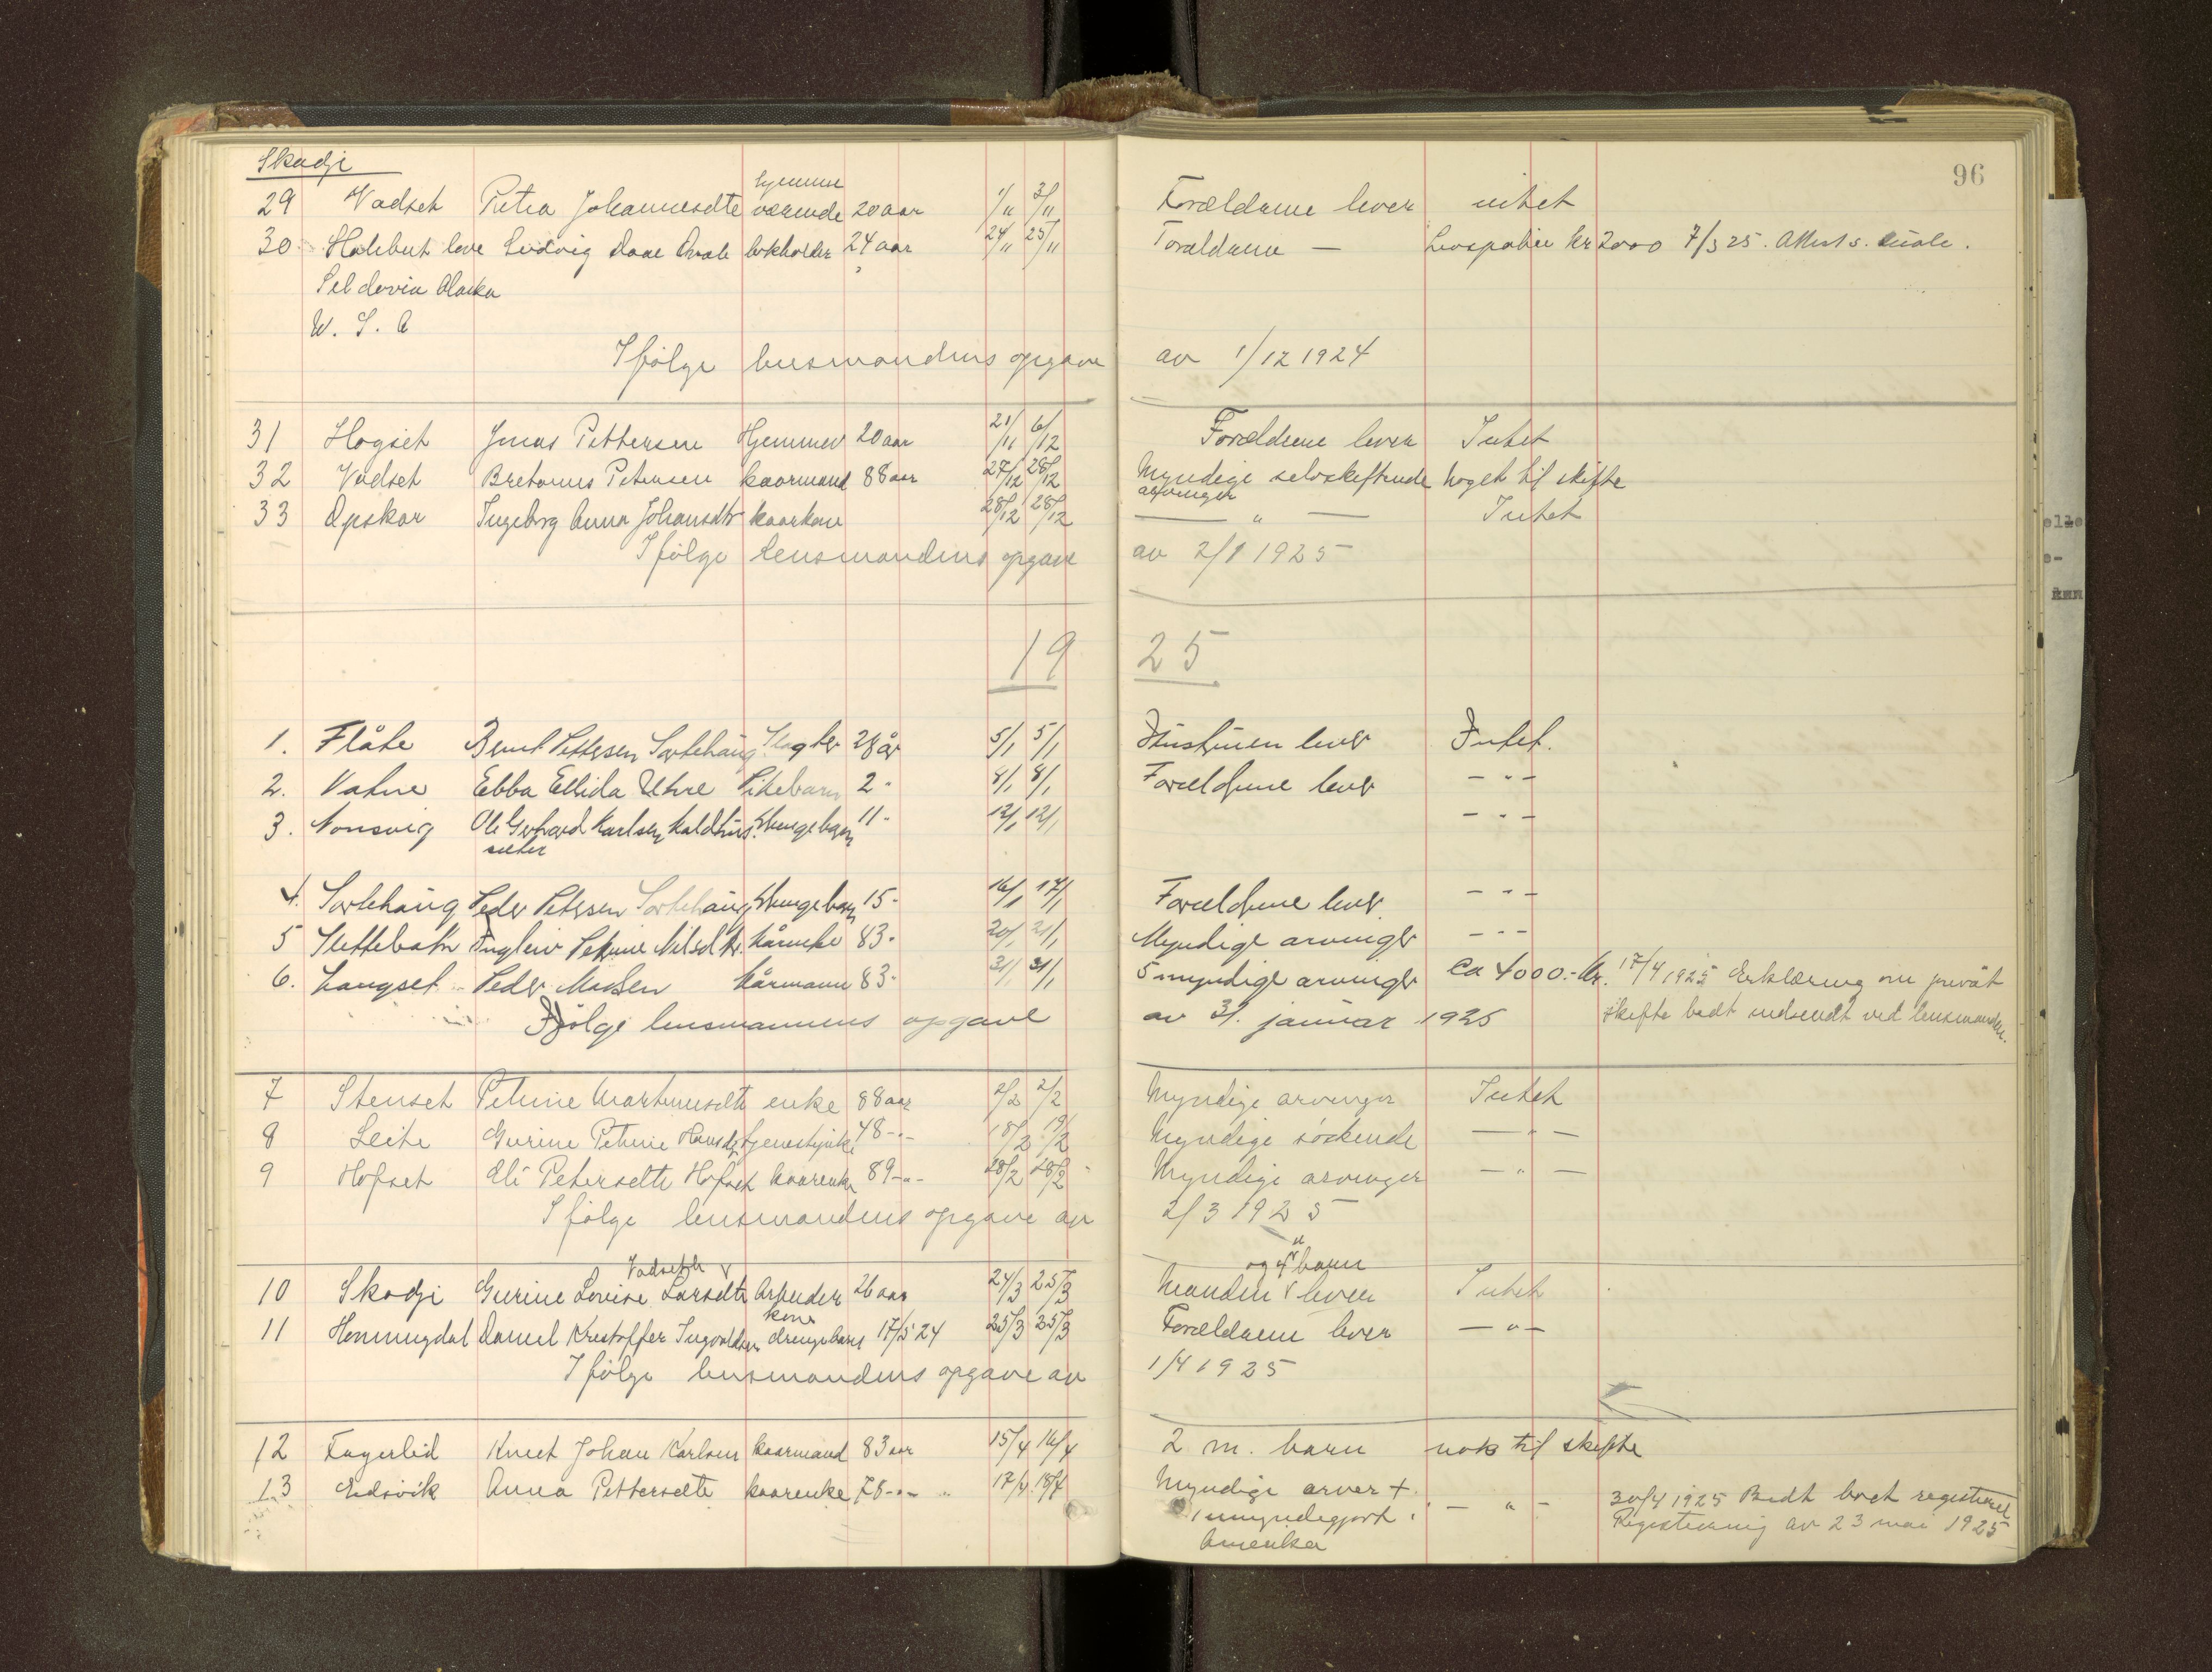 96
Skodje
29 Vadset Petra Johannesdtr hjemmeværende 20 aar 1/11 3/11 Forældrene lever intet
30 Halibut cove Ludvig Daae bokholder 24 aar 24/11 25/11 Forældrene — Livspolice kr 2000 7/3 25. Attest s.
Seldovia Alaska
U. S. A
Ifølge lensmandens opgave av 1/12 1924
31 Hogset Jonas Pettersen Hjemmev 20 aar 21/11 6/12 Forældrene lever Intet
32 Vadset Bretanus Petersen kaarmand 88 aar 27/12 28/12 Myndige selvskiftende arvinger noget til skifte
33 Opskar Ingeborg Anna Johansdtr kaarkone 28/12 28/12 — " — Intet
Ifølge lensmandens opgave av 2/1 1925
19 25
1. Flåte Bernt Pettersen Sortehaug 28 år 5/1 5/1 Hustruen lever Intet.
2. Vatne Ebba Ellida Uhre Pikebarn 2 - 8/1 8/1 Forældrene lever - " -
3. Nonsvig Ole Gerhard Karlsen Kaldhusseter Drengebarn 11 - 12/1 12/1 - " -
4. Sortehaug Peder Petersen Sortehaug, Drengebarn 15 - 16/1 17/1 Forældrene lever - " -
5 Slettebakk Petrine Nilsdtr. kårenke 83 - 20/1 21/1 Myndige arvinger - " -
6. Langset Peder Madsen kårmann 83 - 31/1 31/1 5 myndige arvinger Ca 4000.- kr. 17/4 1925 Erklæring om privat
skifte bedt indsendt ved lensmanden.
Ifølge lensmannens opgave av 31. januar 1925
7 Stenset Petrine Martinusdtr enke 88 aar 2/2 2/2 Myndige arvinger Intet
8 Leite Gurine Petrine Hansdtr tjenestepike 48 -"- 18/2 19/2 Myndige søskende — " —
9 Hofset Eli Petersdtr Hofset kaarenke 89 -"- 28/2 28/2 Myndige arvinger — " —
Ifølge lensmandens opgave av 2/3 1925
10 Skodje Gurine Lovise Larsdtr Vadset Arbeiderkone 26 aar 24/3 25/3 Manden og 4 barn lever Intet
11 Honningdal Daniel Kristoffer Ingvaldsen drengebarn 17/5 24 25/3 25/3 Forældrene lever — " —
Ifølge lensmandens opgave av 1/4 1925
12 Fagerlid Knut Johan Karlsen kaarmand 83 aar 15/4 16/4 2 m. barn nok til skifte
13 Eidsvik Anna Pettersdtr kaarenke 75 -"- 17/4 18/4 Myndige arver + — " — 30/4 1925 Bedt boet registreret
1 umyndiggjort i Registrering av 23 mai 1925
Amerika